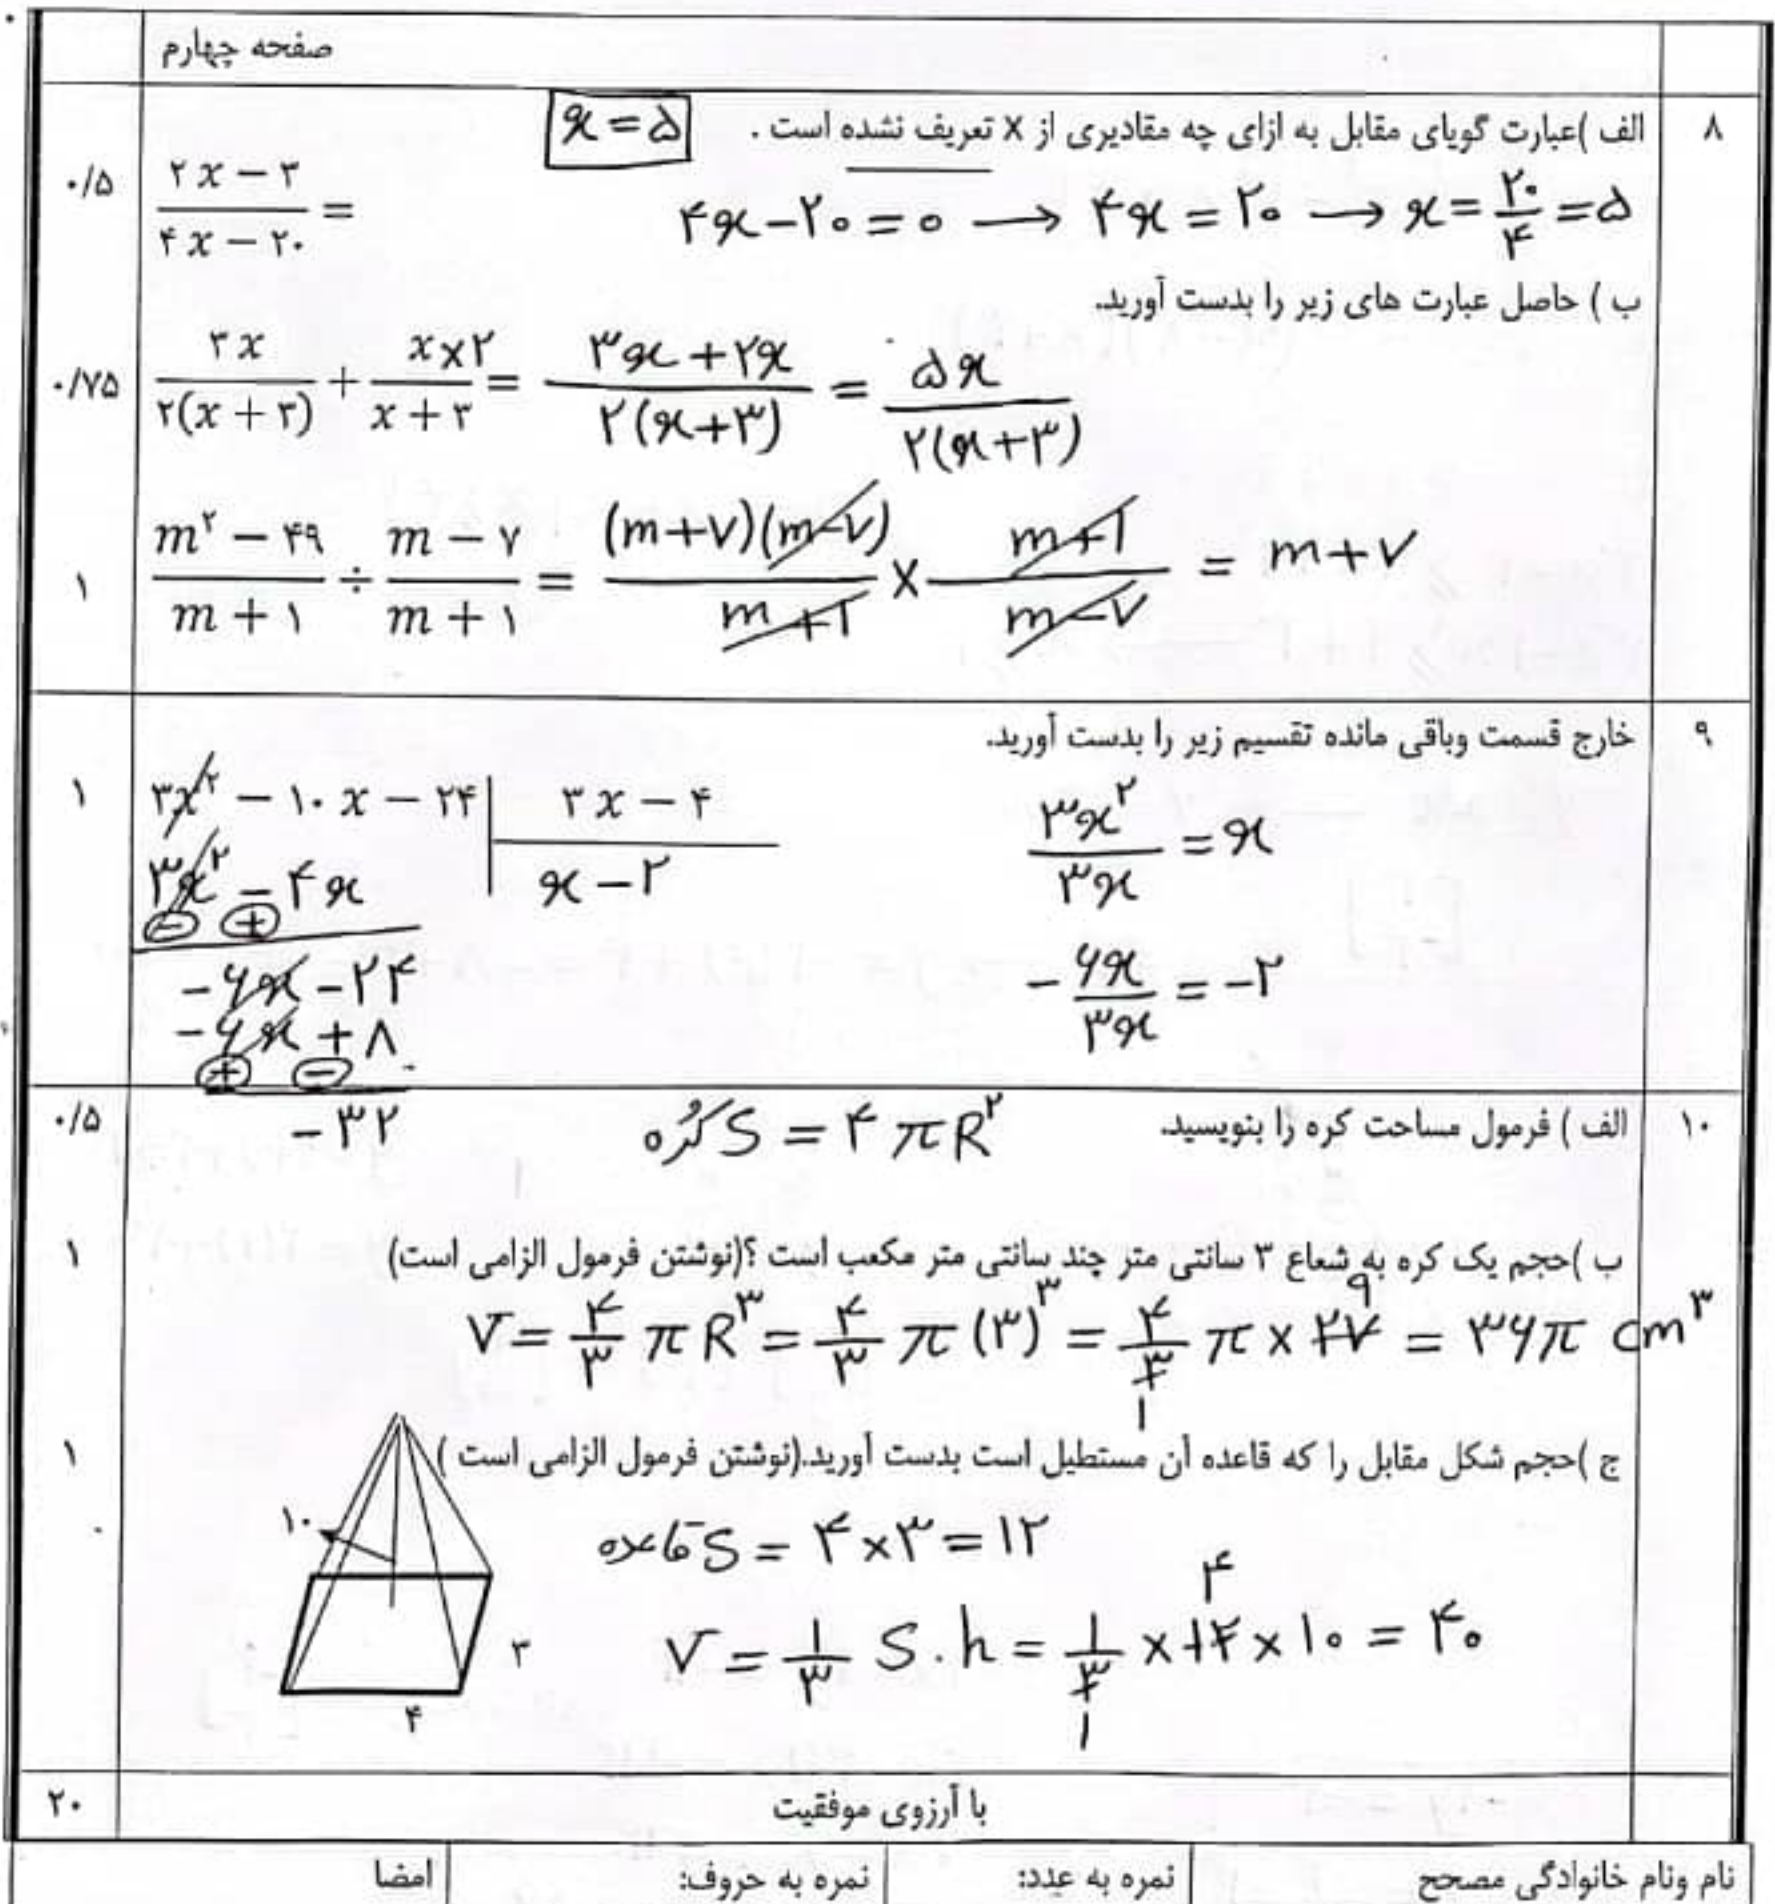 صفحه چهارم
۸ الف )عبارت گویای مقابل به ازای چه مقادیری از x تعریف نشده است . x = ۵
۰/۵ (۲x − ۳)/(۴x − ۲۰) = ۴x − ۲۰ = ۰ → ۴x = ۲۰ → x = ۲۰/۴ = ۵
ب ) حاصل عبارت های زیر را بدست آورید.
۰/۷۵ ۳x/(۲(x + ۳)) + x×۲/(x + ۳) = (۳x + ۲x)/(۲(x+۳)) = ۵x/(۲(x+۳))
۱ (m² − ۴۹)/(m + ۱) ÷ (m − ۷)/(m + ۱) = (m+۷)(m−۷)/(m+۱) × (m+۱)/(m−۷) = m+۷
۹ خارج قسمت وباقی مانده تقسیم زیر را بدست آورید.
۱ ۳x² − ۱۰x − ۲۴ | ۳x − ۴
۳x² − ۴x x − ۲ ۳x²/۳x = x
− +
−۶x − ۲۴ −۶x/۳x = −۲
−۶x + ۸
+ −
−۳۲
۱۰ الف ) فرمول مساحت کره را بنویسید. S کُره = ۴πR² ۰/۵
ب )حجم یک کره به شعاع ۳ سانتی متر چند سانتی متر مکعب است ؟(نوشتن فرمول الزامی است) ۱
۹
V = ۴/۳ πR³ = ۴/۳ π(۳)³ = ۴/۳ π × ۲۷ = ۳۶π cm³
۱
ج )حجم شکل مقابل را که قاعده آن مستطیل است بدست آورید.(نوشتن فرمول الزامی است ) ۱
۱۰
S قاعده = ۴×۳ = ۱۲
۴
V = ۱/۳ S.h = ۱/۳ × ۱۲ × ۱۰ = ۴۰
۱
۳
۴
با آرزوی موفقیت ۲۰
نام ونام خانوادگی مصحح نمره به عدد: نمره به حروف: امضا